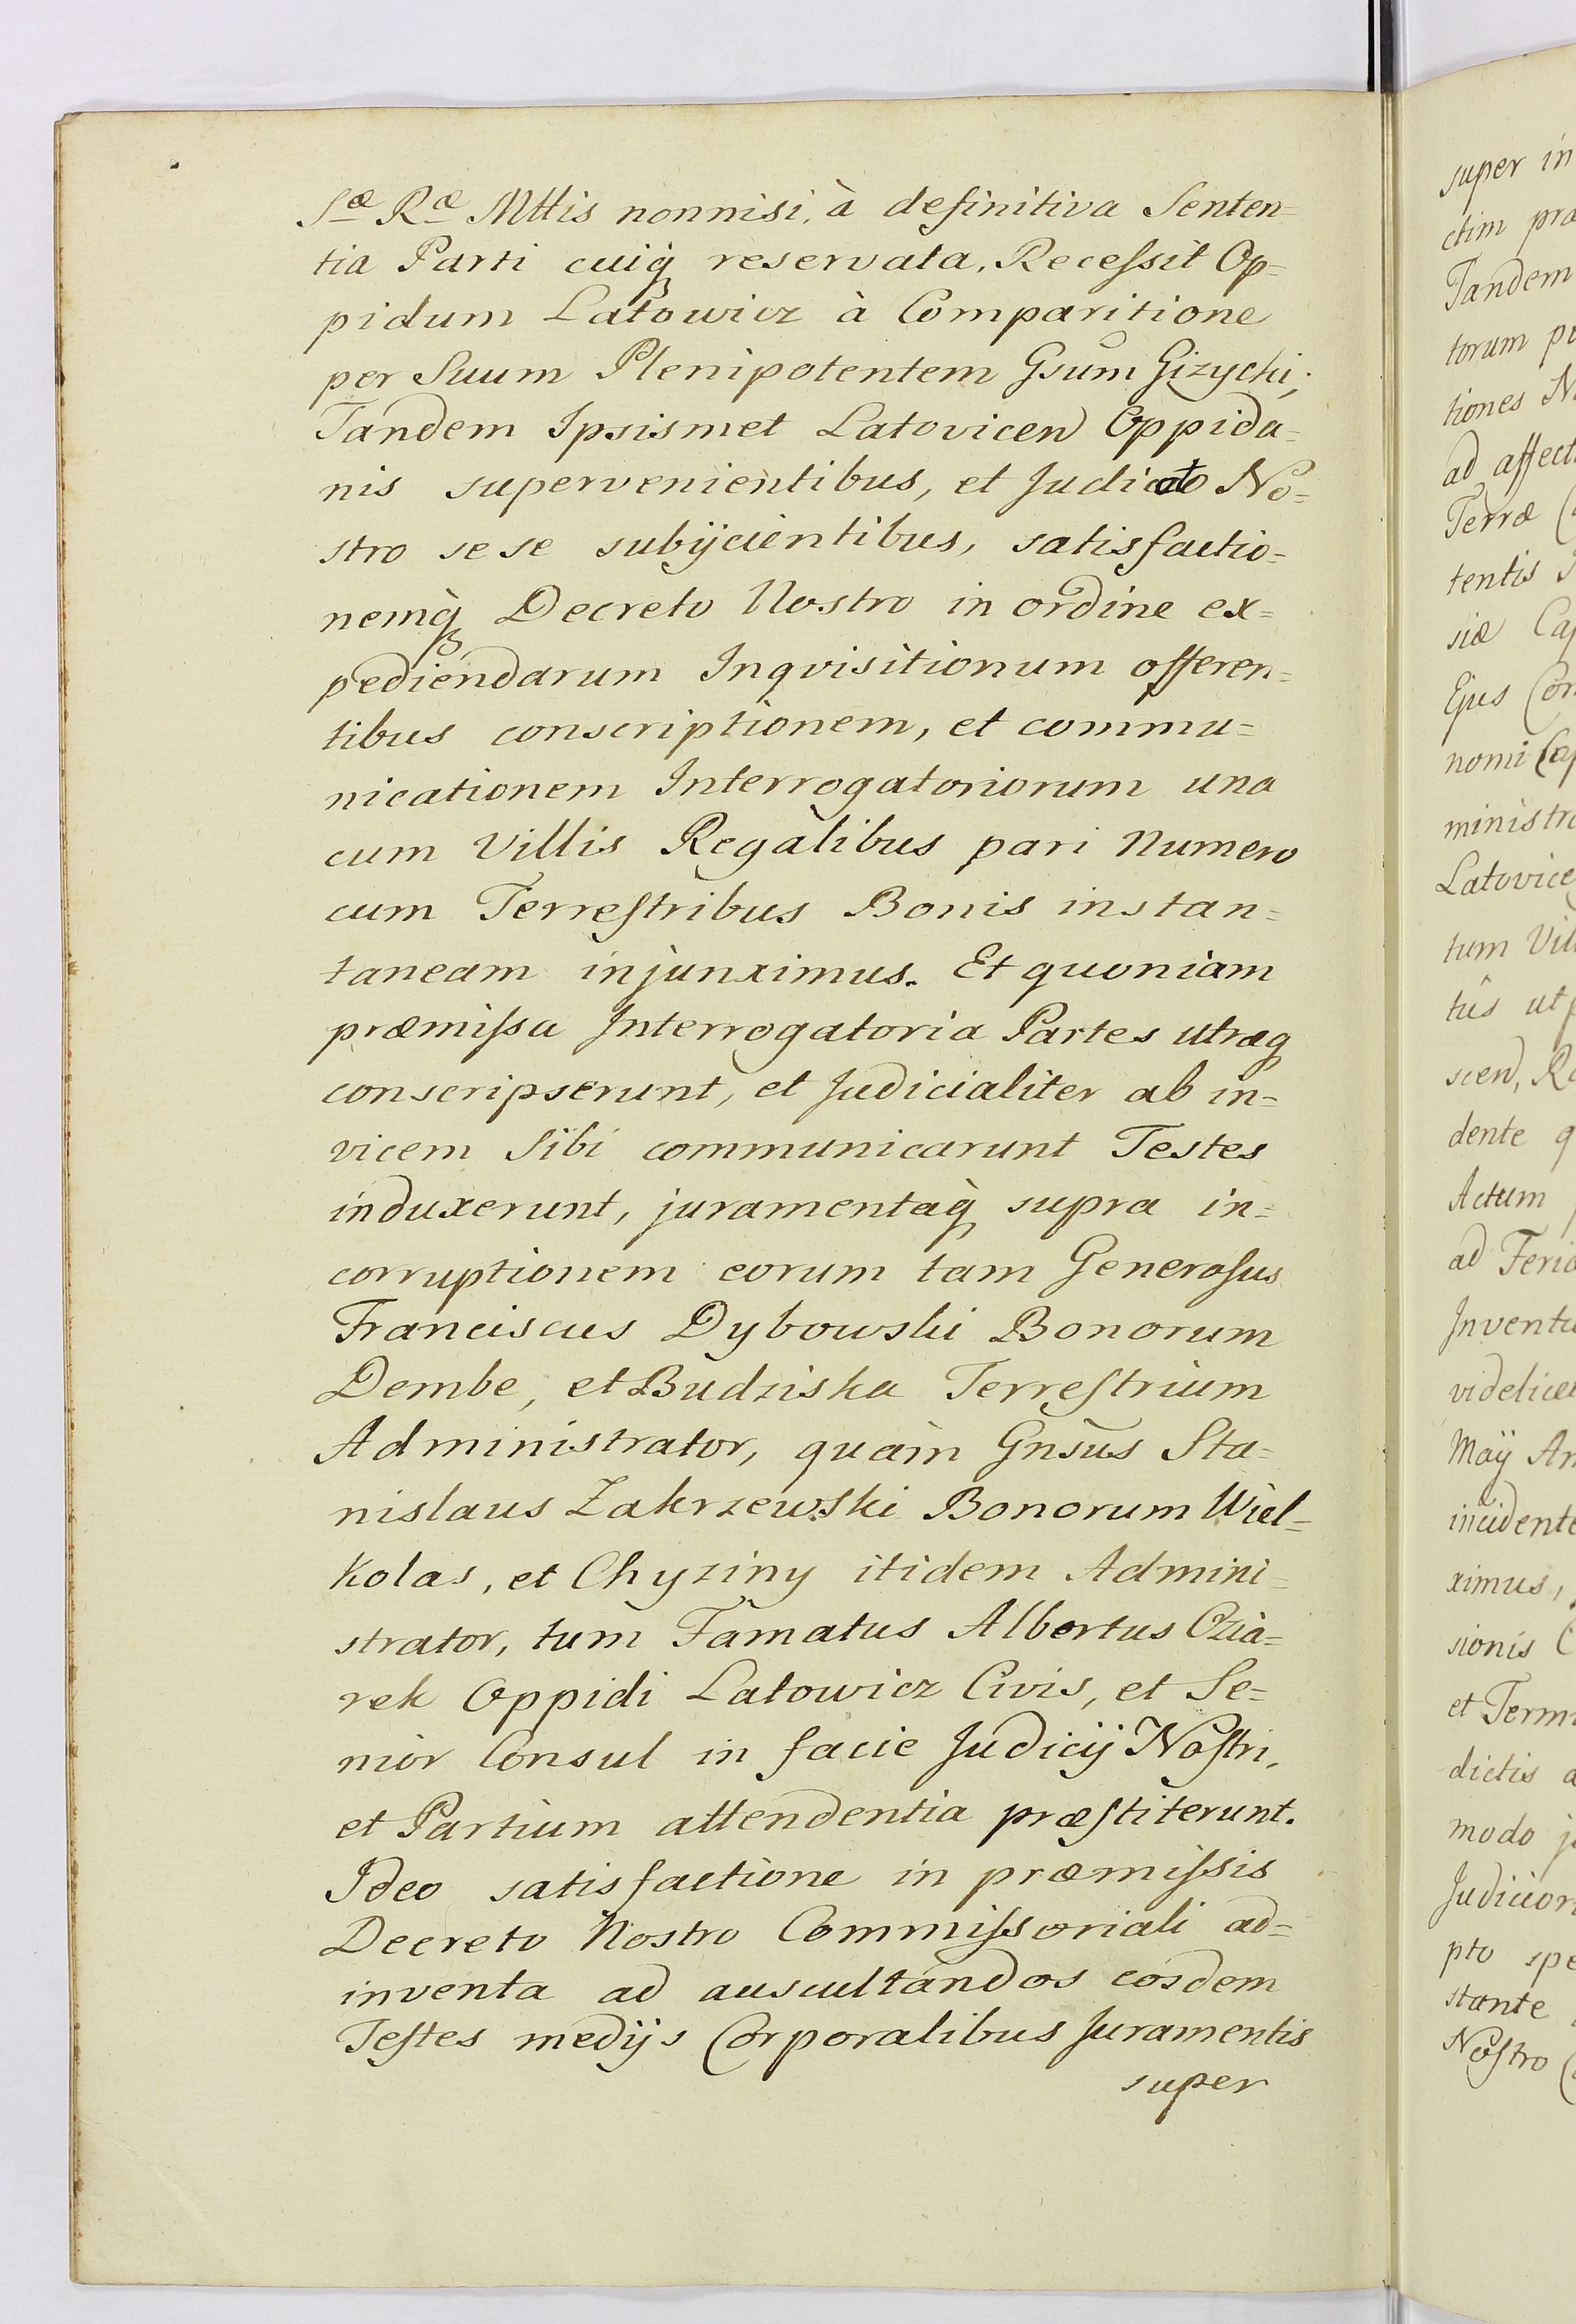 Sæ Ræ Mttis nonnisi à definitiva Senten=
tia Parti cuiq reservata, Recessit Op=
pidum Latowicz à Comparitione
per Suum Plenipotentem Gsum Gizycki;
Tandem Ipsismet Latovicen Oppida=
nis supervenientibus, et Judicato No=
stro sese subijcientibus, satisfactio=
nemq Decreto Nostro in ordine ex=
pediendarum Inqvisitionum offeren=
tibus conscriptionem, et commu=
nicationem Interrogatoriorum una
cum Villis Regalibus pari Numero
cum Terrestribus Bonis instan=
taneam injunximus. Et quoniam
præmissa Interrogatoria Partes utræq
conscripserunt, et Judicialiter ab in=
vicem Sibi communicarunt Testes
induxerunt, juramentaq supra in=
corruptionem eorum tam Generosus
Franciscus Dybowski Bonorum
Dembe, et Budziska Terrestrium
Administrator, quam Gnsus Sta=
nislaus Zakrzewski Bonorum Wiel=
kolas, et Chyziny itidem Admini=
strator, tum Famatus Albertus Ozia=
rek Oppidi Latowicz Civis, et Se=
nior Consul in facie Judicij Nostri,
et Partium attendentia præstiterunt.
Ideo satisfactione in præmissis
Decreto Nostro Commissoriali ad=
inventa ad auscultandos eosdem
Testes medijs Corporalibus Juramentis
super
super in
ctim præ
Tandem
torum
tiones
ad affect
Terræ
tentis
siæ Cap
Ejus Con
nomi Cap
ministra
Latovice
tum Vill
tus ut
scen, Re
dente q
Actum
ad Feria
Inventu
videlicet
Maij An
incidente
ximus,
sionis C
et Termi
dictis a
modo j
Judicior
pto spe
stante
Nostro